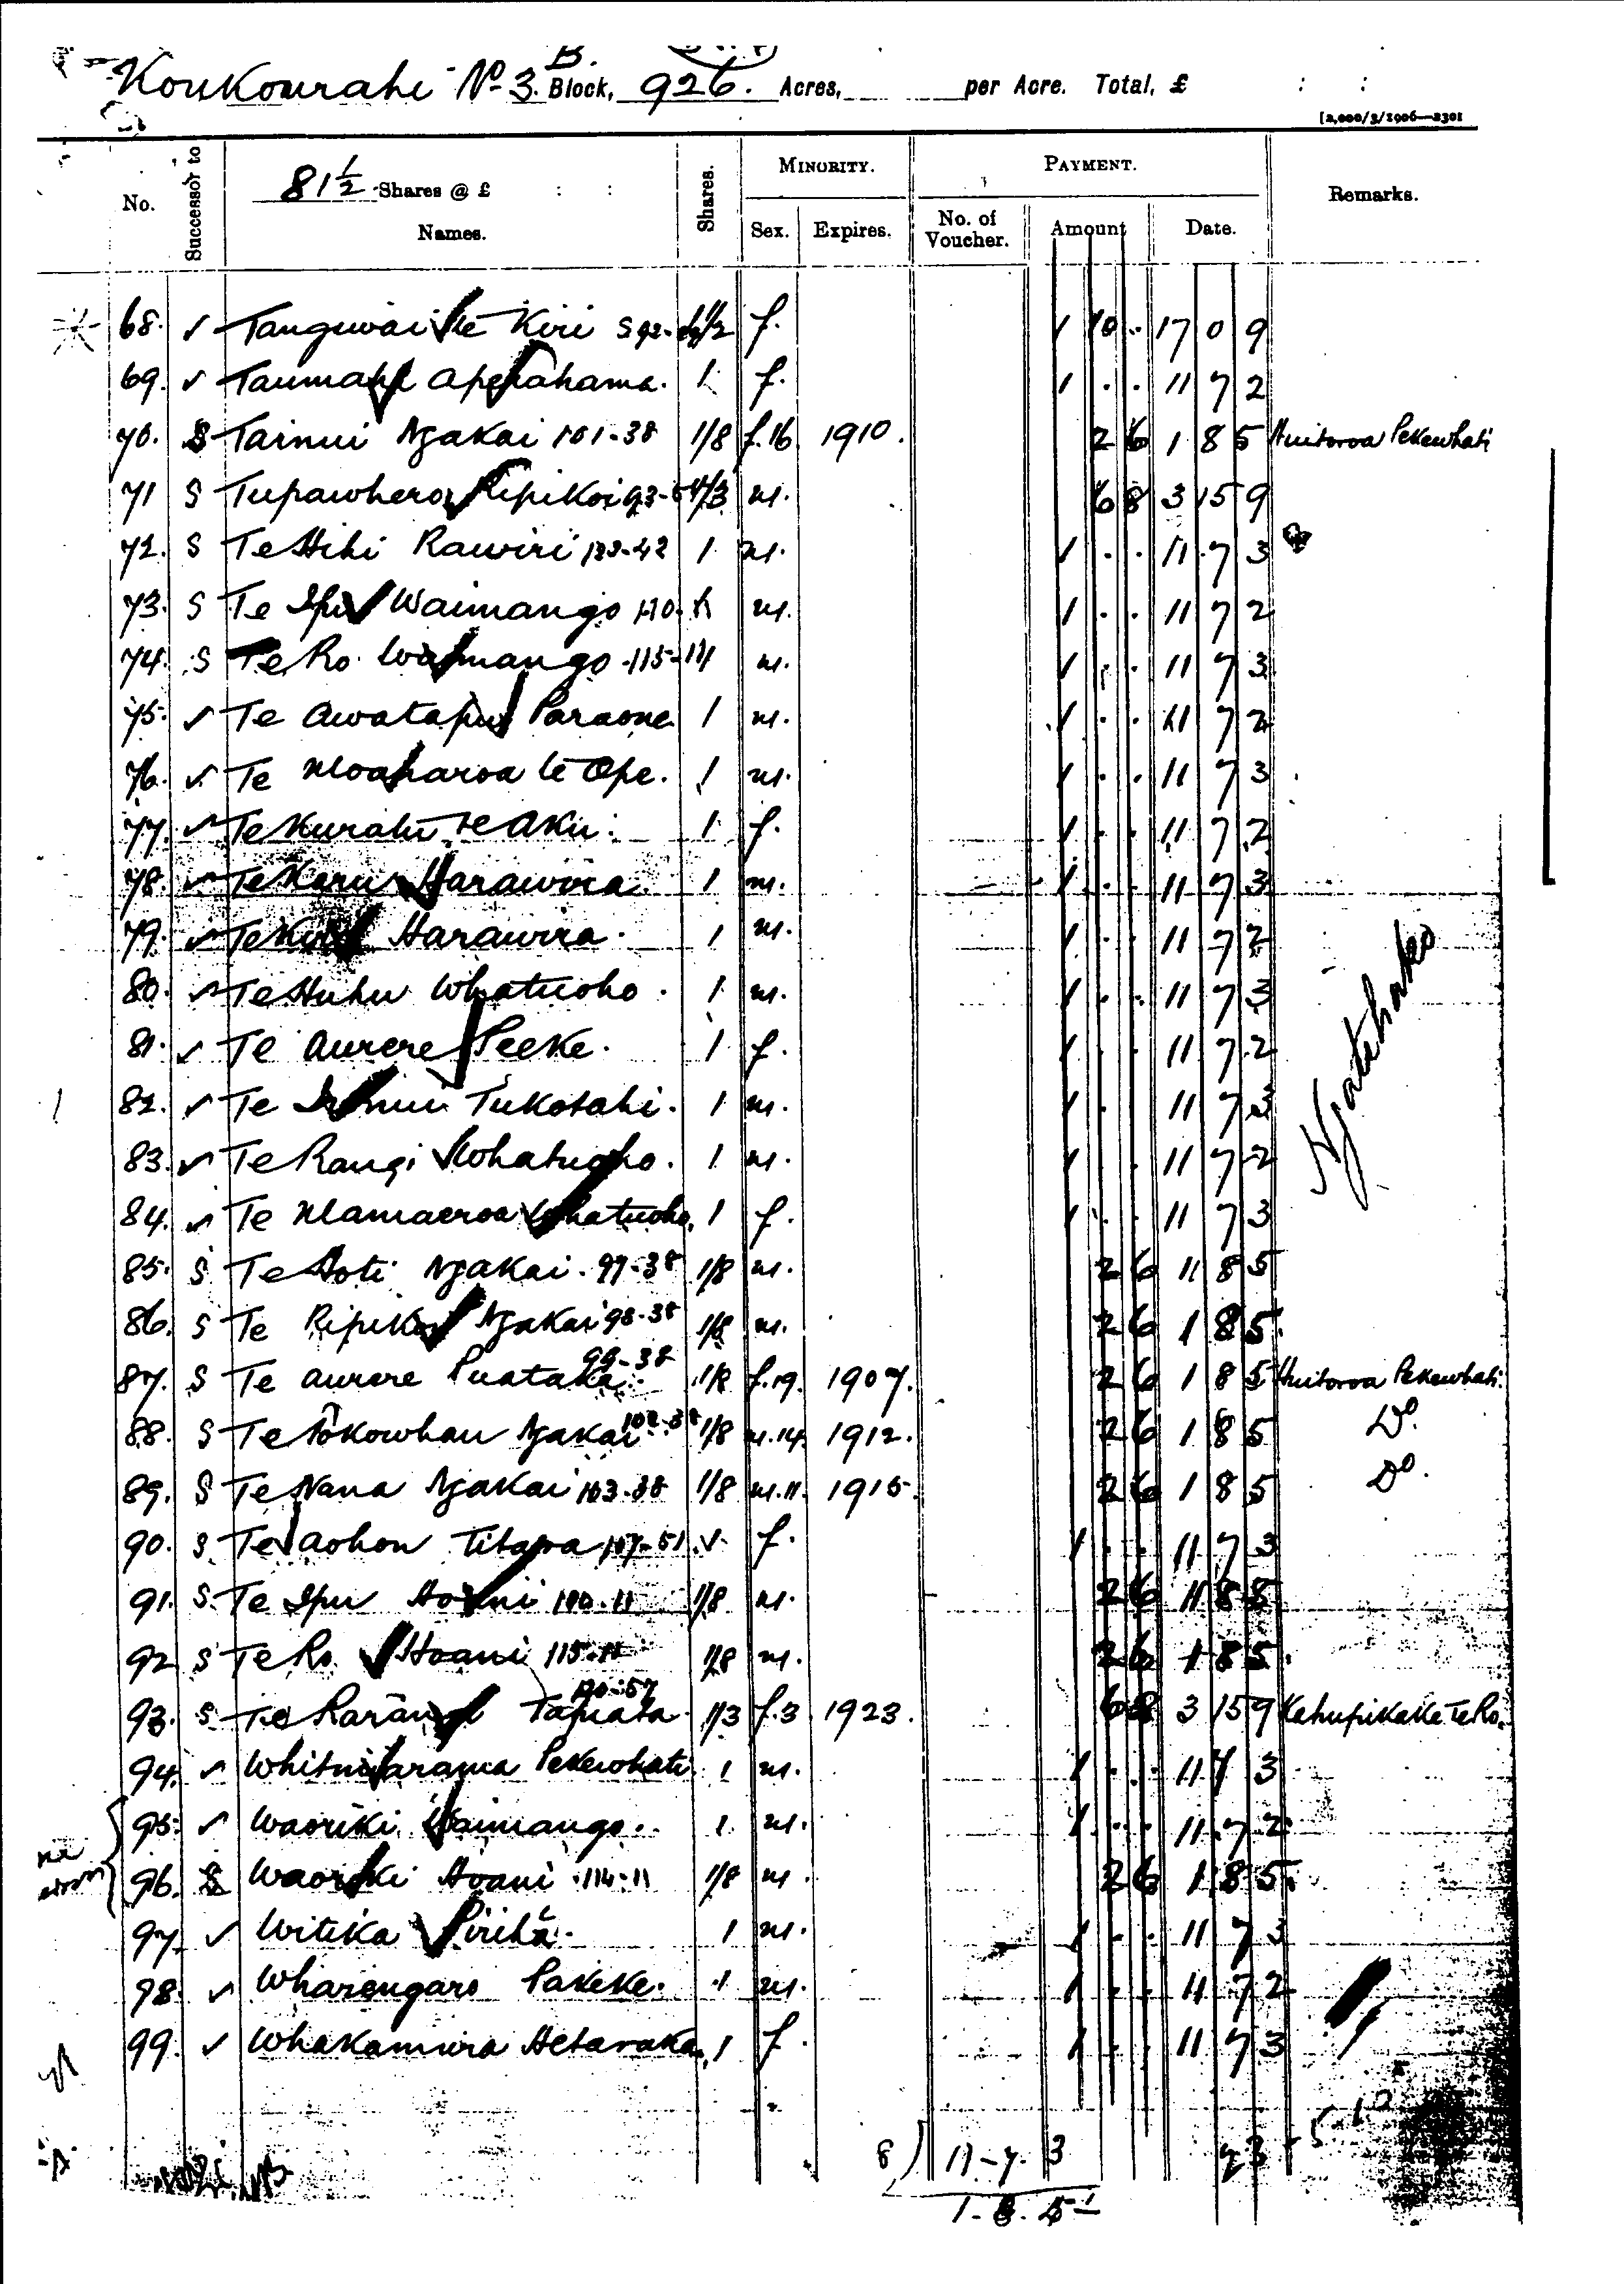 Koukourahi No 3. B. Block, 926. Acres, per Acre. Total, £ : :
[2,000/3/1906—2301
No. Successor to 81 1/2 Shares @ £ : : Names. Shares. MINORITY. Sex. Expires. PAYMENT. No. of Voucher. Amount Date. Remarks.
68. ✓ Tanguwai te Kiri 1/2 f. 1 10 . 17 0 9
69. ✓ Aperahama. 1 f. 1 . . 11 7 2
70. S Tainui Ngakai 101-38 1/8 f.16. 1910. 2 6 1 8 5 Huitoroa Pekewhati
71 S Tupawhero Ripikoi 93- 1/3 m. 6 8 3 15 9
72. S Te Hihi Rawiri 42 1 m. 1 . . 11 7 3
73. S Te Ipu Waimango 110- m. 1 . . 11 7 2
74. S Te Ro Waimango 115-11 m. 1 . . 11 7 3
75. ✓ Te Awatapu Paraone 1 m. 1 . . 11 7 2
76. ✓ Te Moaharoa te Ope. 1 m. 1 . . 11 7 3
77. ✓ Te Kuratu te Aku. 1 f. 1 . . 11 7 2
78. ✓ Te Keru Harawira. 1 m. 1 . . 11 7 3
79. ✓ Harawira. 1 m. 1 . . 11 7 2
80. ✓ Te Huhu Whatuoho. 1 m. 1 . . 11 7 3
81. ✓ Te Aurere Peeke. 1 f. 1 . . 11 7 2
82. ✓ Te Tukotahi. 1 m. 1 . . 11 7 3
83. ✓ Te Rangi Whatuoho. 1 m. 1 . . 11 7 2
84. ✓ Te Mamaeroa Whatuoho. 1 f. 1 . . 11 7 3
85. S Te Hoti Ngakai. 97-38 1/8 m. 2 6 11 8 5
86. S Te Ripikoi Ngakai 98-38 1/8 m. 2 6 1 8 5
87. S Te Aurere Puataka 99-38 1/8 f.19. 1907. 2 6 1 8 5 Huitoroa Pekewhati.
88. S Te Tokowhau Ngakai 102-38 1/8 m.14. 1912. 2 6 1 8 5 Do.
89. S Te Nana Ngakai 103-38 1/8 m.11. 1915. 2 6 1 8 5 Do.
90. S Te Aohou Titapa 107-51 f. 1 . . 11 7 3
91. S Te Ipu Hoani 110-11 1/8 m. 2 6 11 8 5
92 S Te Ro Hoani 115-11 1/8 m. 2 6 1 8 5
93. S Te Tapuata 1/3 f.3 1923. 6 8 3 15 9 Kahupikake Te Ro.
94. ✓ Pekewhati 1 m. 1 . . 11 7 3
95. ✓ Waoriki Waimango. 1 m. 1 . . 11 7 2
96. S Waoriki Hoani 114-11 1/8 m. 2 6 1 8 5
97. ✓ Witika Piriha. 1 m. 1 . . 11 7 3
98. ✓ Wharengaro Pakeke. 1 m. 1 . . 11 7 2
99. ✓ Whakamura Hetaraka. 1 f. 1 . . 11 7 3
8) 11-7. 3